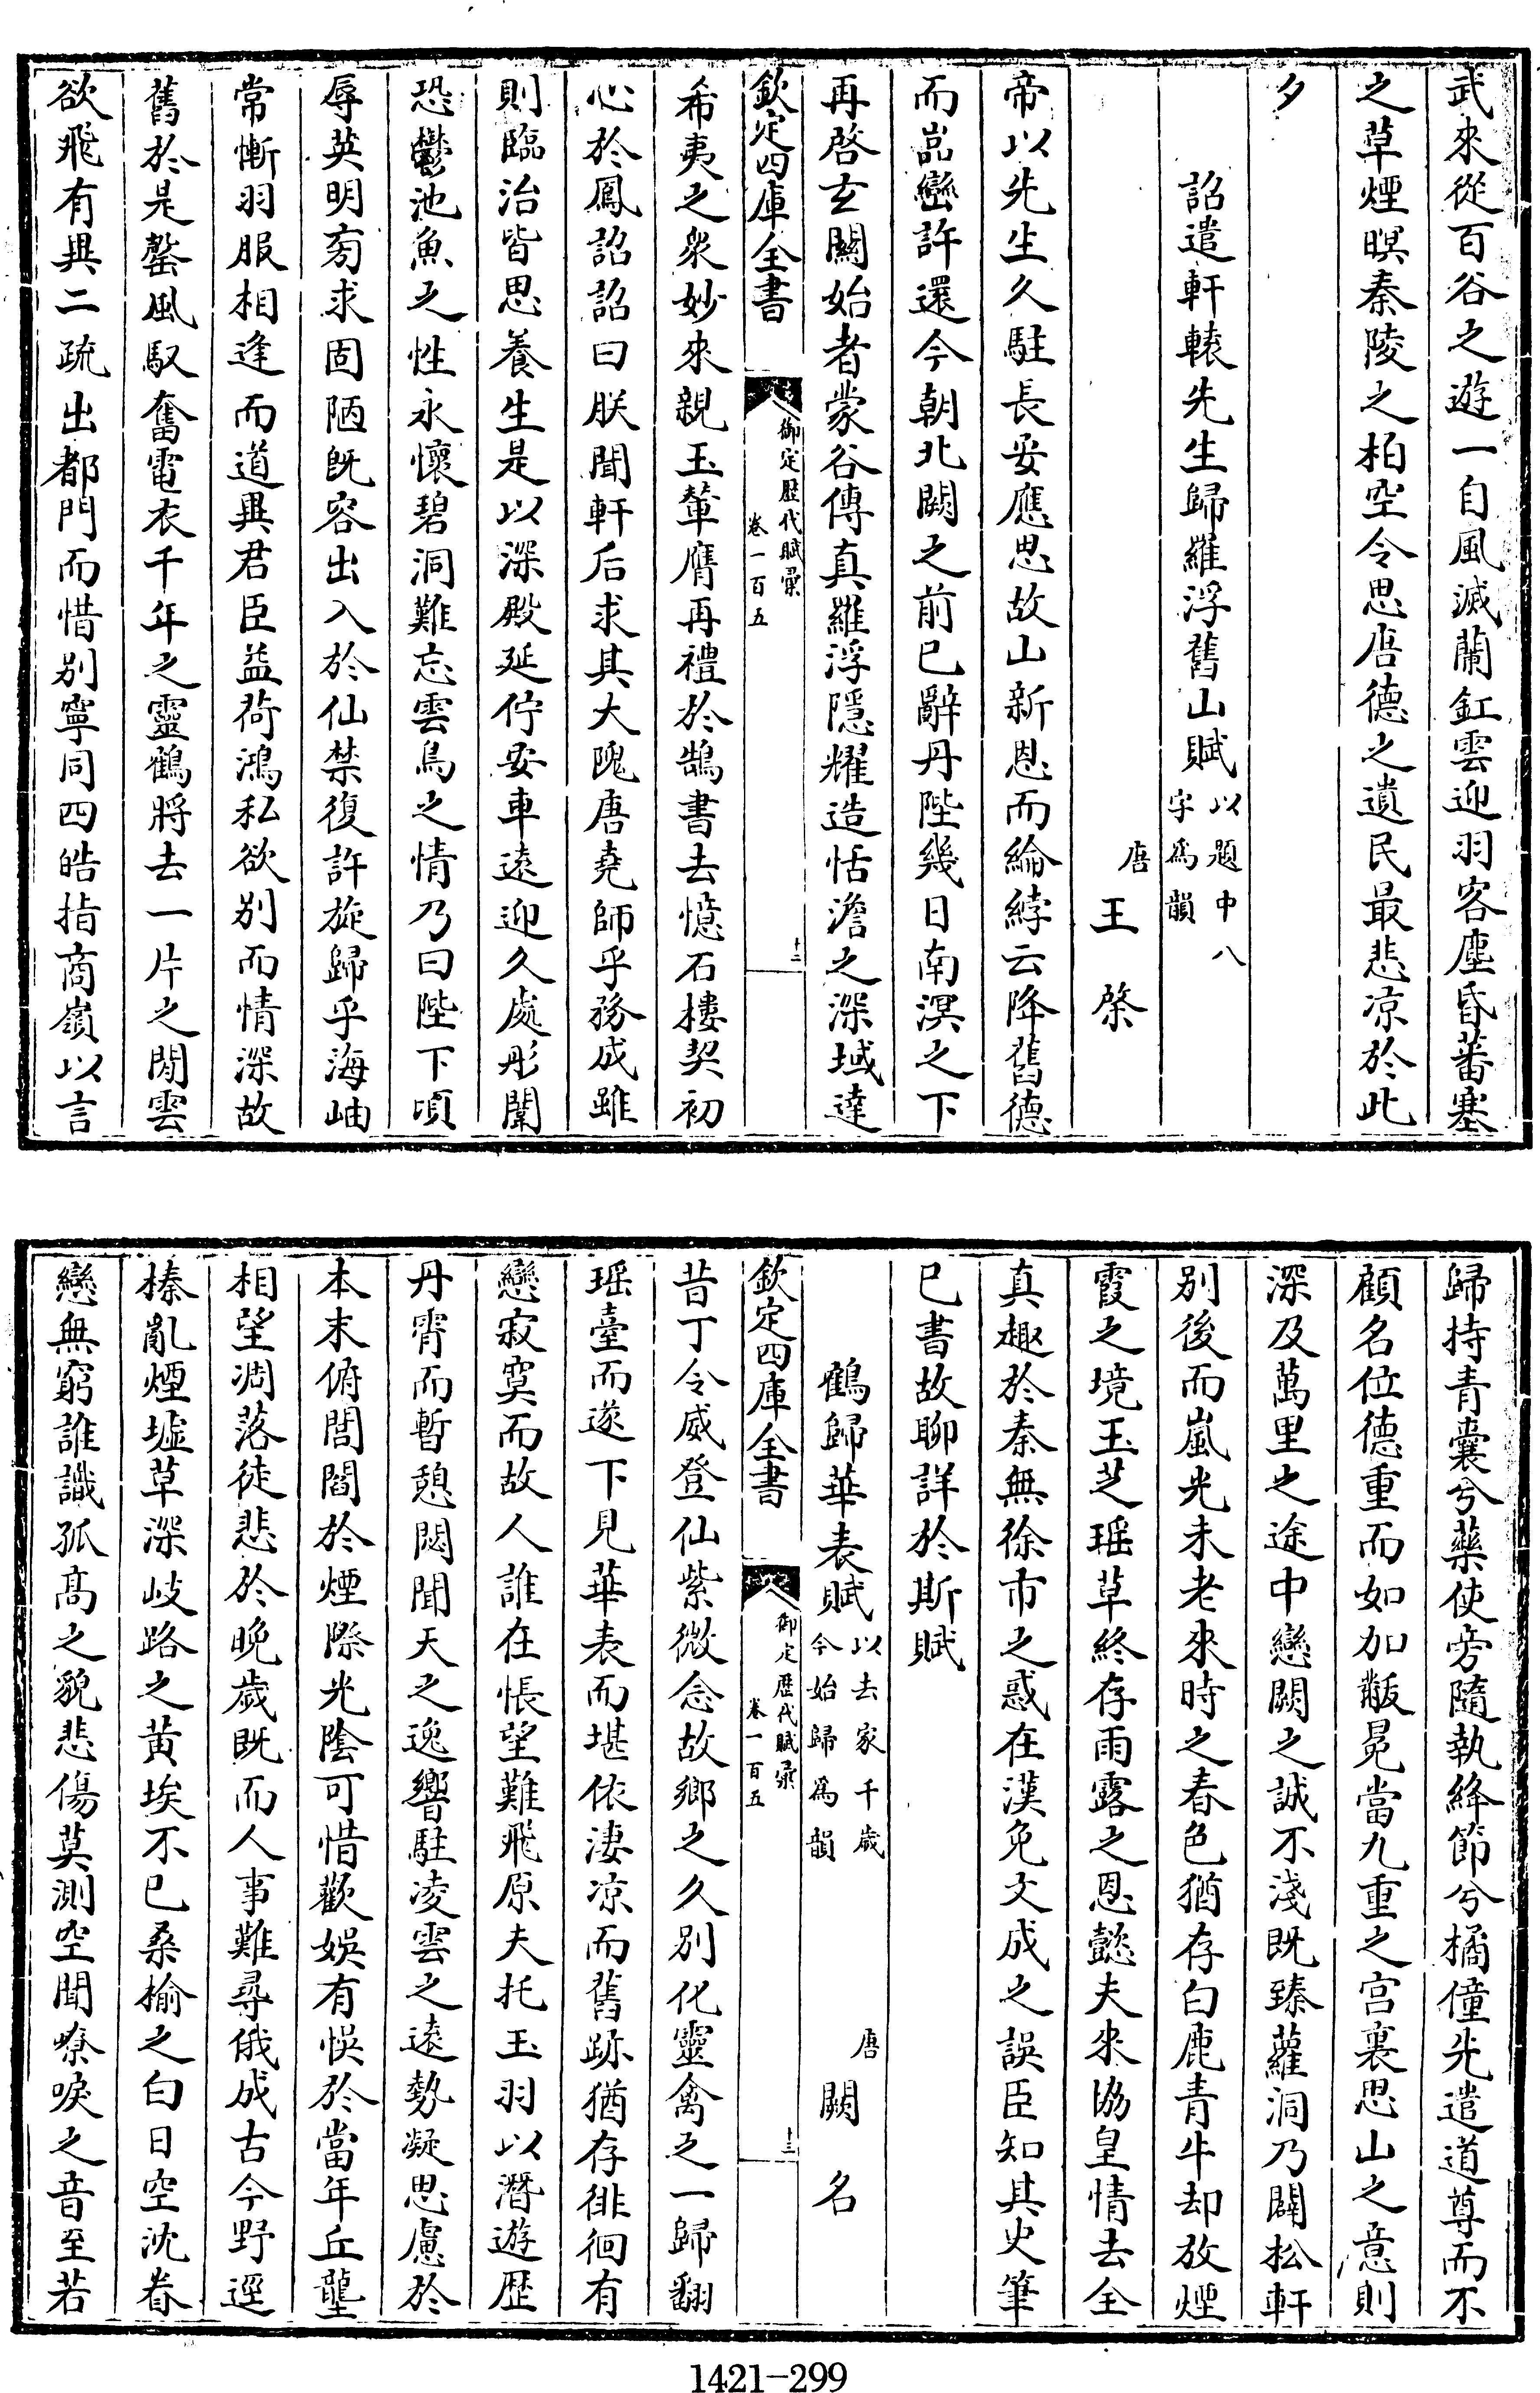 武來從百谷之遊一自風滅蘭釭雲迎羽客塵昏蕃塞
之草煙暝秦陵之柏空令思唐德之遺民最悲凉於此
夕
詔遣軒轅先生歸羅浮舊山賦以題中八字爲韻
唐王棨
帝以先生久駐長安應思故山新恩而綸綍云降舊德
而嵓巒許還今朝北闕之前已辭丹陛幾日南溟之下
再啓玄關始者蒙谷傳真羅浮隱耀造恬澹之深域達
欽定四庫全書
御定歷代賦彙
卷一百五
十二
希夷之衆妙來親玉輦膺再禮於鵠書去憶石樓契初
心於鳳詔詔曰朕聞軒后求其大隗唐堯師乎務成雖
則臨治皆思養生是以深殿延佇安車遠迎久處彤闈
恐鬱池魚之性永懷碧洞難忘雲鳥之情乃曰陛下頃
辱英明旁求固陋既容出入於仙禁復許旋歸乎海岫
常慚羽服相逢而道異君臣益荷鴻私欲别而情深故
舊於是罄風馭奮電衣千年之靈鶴將去一片之閒雲
欲飛有異二疏出都門而惜别寧同四皓指商嶺以言
歸持青囊兮藥使旁隨執絳節兮橘僮先遣道尊而不
顧名位德重而如加黻冕當九重之宫裏思山之意則
深及萬里之途中戀闕之誠不淺既臻蘿洞乃闢松軒
别後而嵐光未老來時之春色猶存白鹿青牛却放煙
霞之境玉芝瑶草終存雨露之恩懿夫來協皇情去全
真趣於秦無徐市之惑在漢免文成之誤臣知其史筆
已書故聊詳於斯賦
鶴歸華表賦以去家千歲今始歸爲韻
唐闕名
欽定四庫全書
御定歷代賦彙
卷一百五
十三
昔丁令威登仙紫微念故鄉之久别化靈禽之一歸翻
瑶臺而遂下見華表而堪依淒凉而舊跡猶存徘徊有
戀寂寞而故人誰在悵望難飛原夫托玉羽以潛遊歷
丹霄而暫憩閟聞天之逸響駐凌雲之遠勢凝思慮於
本末俯閭閻於煙際光陰可惜歡娛有悞於當年丘壟
相望凋落徒悲於晚歲既而人事難尋俄成古今野逕
榛亂煙墟草深岐路之黄埃不已桑榆之白日空沈眷
戀無窮誰識孤高之貌悲傷莫測空聞嘹唳之音至若
1421-299